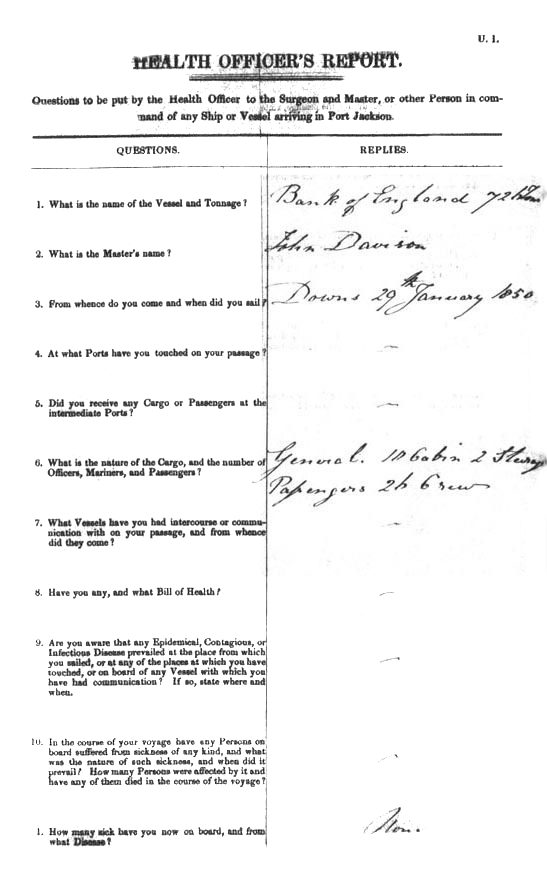 U. 1.
HEALTH OFFICER'S REPORT.
Questions to be put by the Health Officer to the Surgeon and Master, or other Person in com-
mand of any Ship or Vessel arriving in Port Jackson.
QUESTIONS. REPLIES.
1. What is the name of the Vessel and Tonnage? Bank of England
2. What is the Master's name? John Davison
3. From whence do you come and when did you sail? Downs 29th January 1850
4. At what Ports have you touched on your passage? —
5. Did you receive any Cargo or Passengers at the
intermediate Ports? —
6. What is the nature of the Cargo, and the number of General. Cabin 2
Officers, Mariners, and Passengers? Passengers Crew
7. What Vessels have you had intercourse or commu- —
nication with on your passage, and from whence
did they come?
8. Have you any, and what Bill of Health? —
9. Are you aware that any Epidemical, Contagious, or
Infectious Disease prevailed at the place from which
you sailed, or at any of the places at which you have —
touched, or on board of any Vessel with which you
have had communication? If so, state where and
when.
10. In the course of your voyage have any Persons on
board suffered from sickness of any kind, and what
was the nature of such sickness, and when did it —
prevail? How many Persons were affected by it and
have any of them died in the course of the voyage?
1. How many sick have you now on board, and from None.
what Disease?